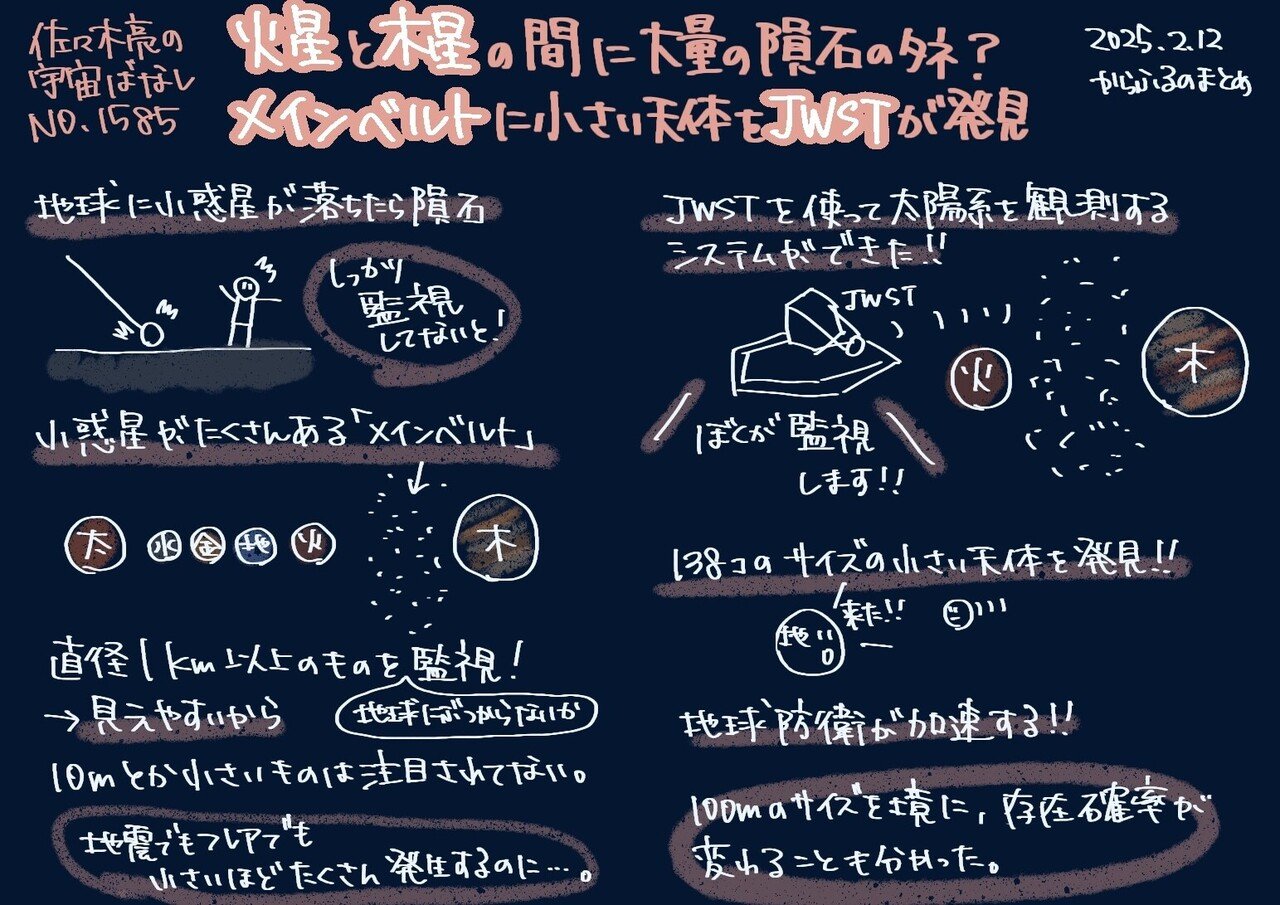 佐々木亮の
宇宙ばなし
NO.1585
火星と木星の間に大量の隕石のタネ？
メインベルトに小さい天体をJWSTが発見
2025.2.12
からふるのまとめ
地球に小惑星が落ちたら隕石
しっかり
監視
してないと！
小惑星がたくさんある「メインベルト」
太 水 金 地 火 木
直径1km以上のものを監視！
→見えやすいから
地球にぶつからないか
10mとか小さいものは注目されてない。
地震でもフレアでも
小さいほどたくさん発生するのに…。
JWSTを使って太陽系を観測する
システムができた!!
JWST
火 木
ぼくが監視
します!!
138コのサイズの小さい天体を発見!!
来た!!
地
地球防衛が加速する!!
100mのサイズを境に、存在確率が
変わることも分かった。